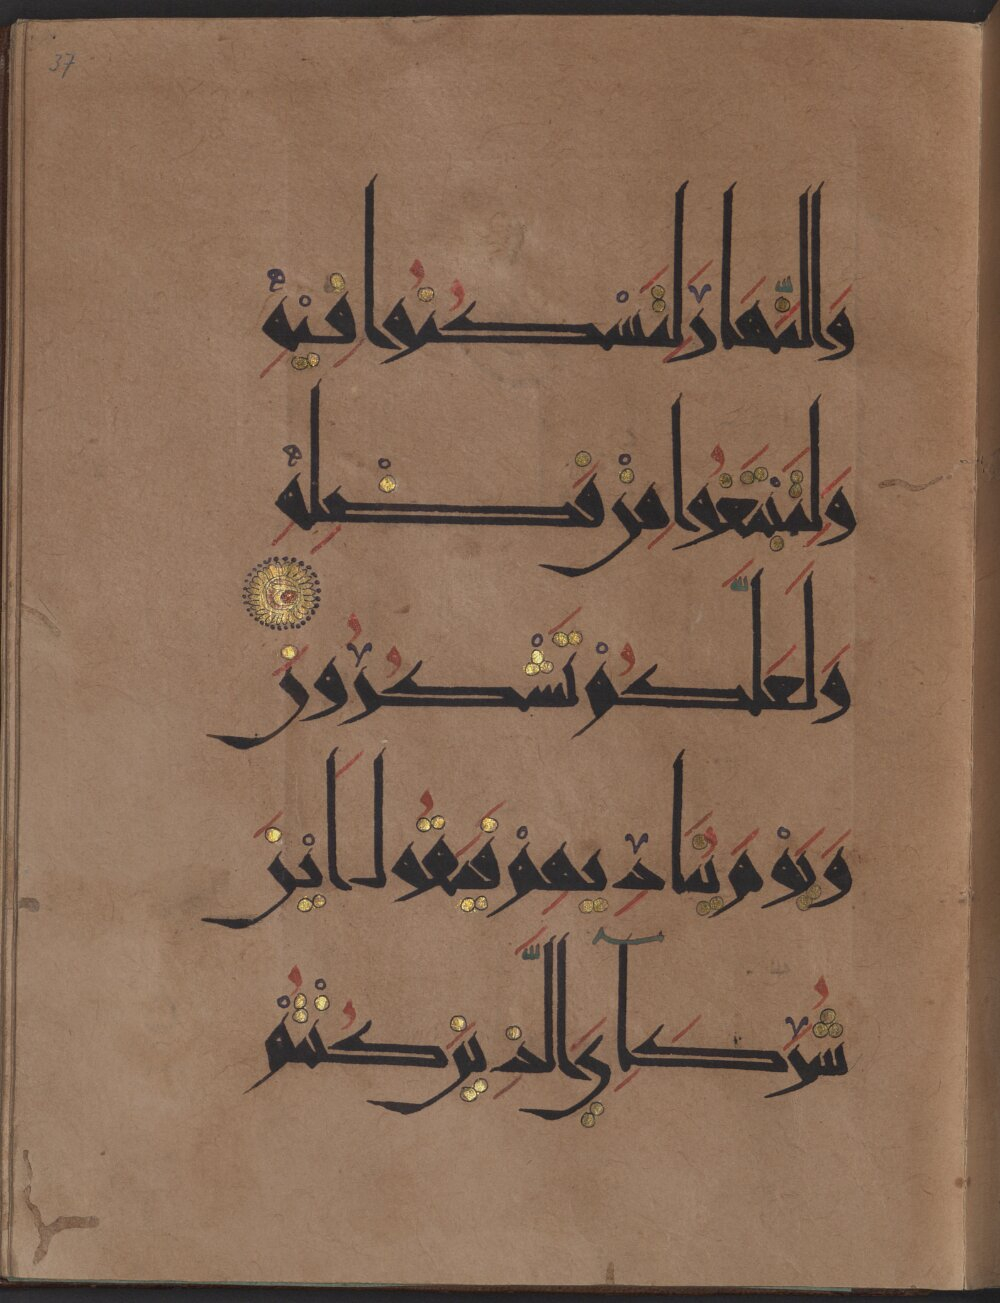 37
وَالنَّهَارَ لِتَسْكُنُوا فِيهِ
وَلِتَبْتَغُوا مِنْ فَضْلِهِ
وَلَعَلَّكُمْ تَشْكُرُونَ
وَيَوْمَ يُنَادِيهِمْ فَيَقُولُ أَيْنَ
شُرَكَآيَ الَّذِينَ كُنْتُمْ